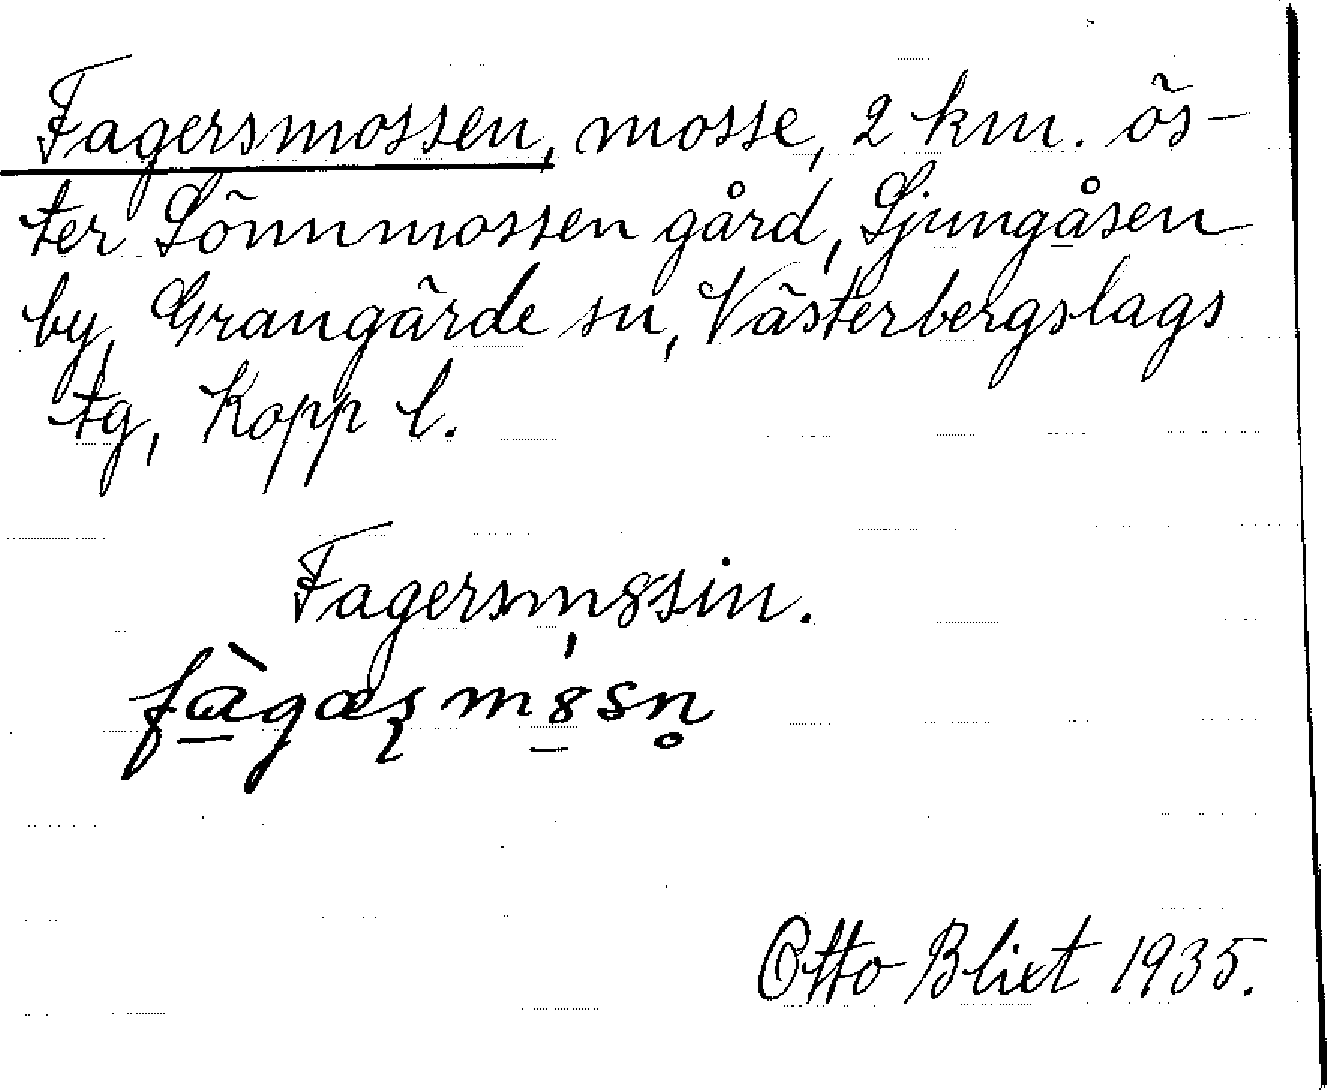 Fagersmossen, mosse, 2 km. ös-
ter Lönnmossen gård, Ljungåsen
by, Grangärde sn, Västerbergslags
tg, Kopp l.
Fagersm8sin.
fàgæʂm8sn̥
Otto Blixt 1935.